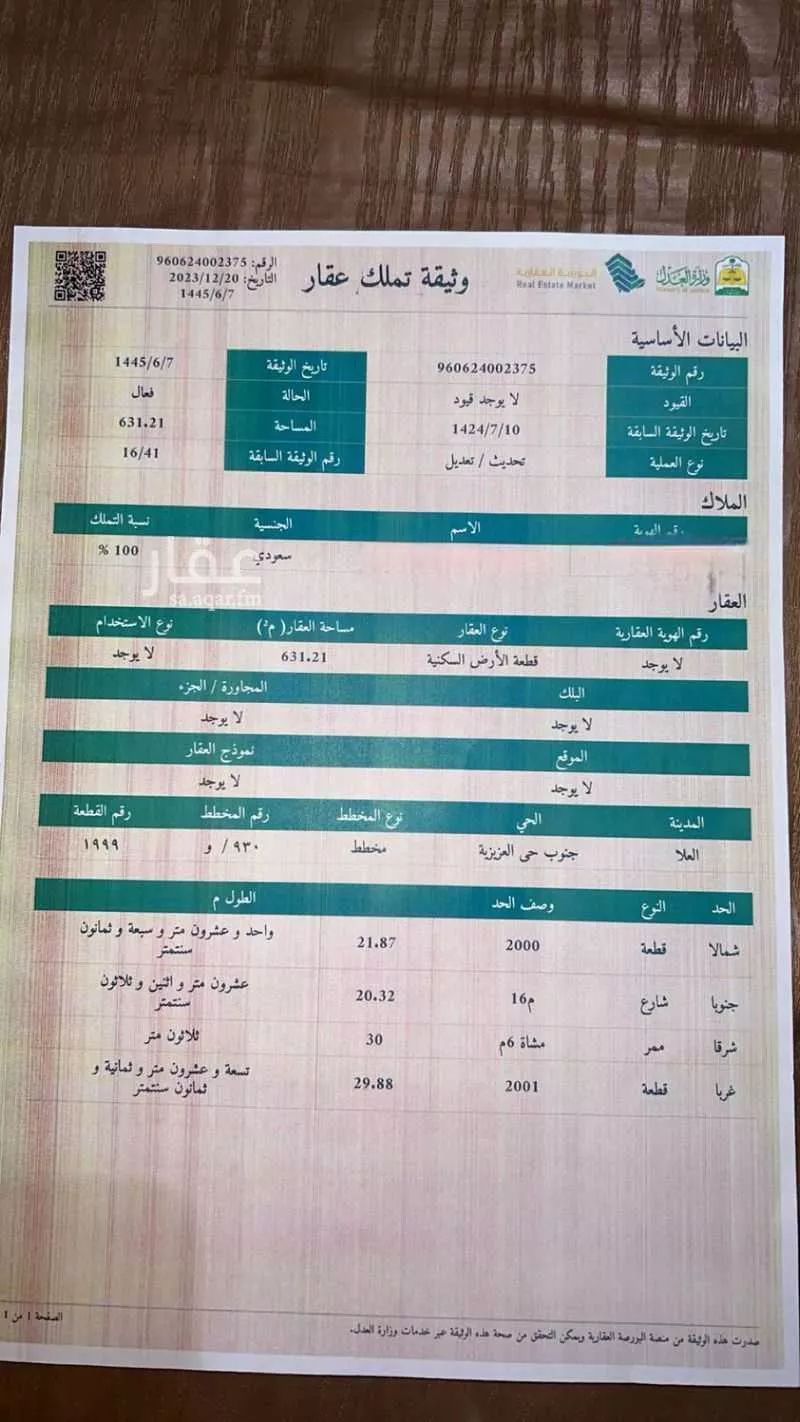 وزارة العدل
البورصة العقارية
Real Estate Market
وثيقة تملك عقار
الرقم: 960624002375
التاريخ: 2023/12/20
1445/6/7
البيانات الأساسية
رقم الوثيقة 960624002375 تاريخ الوثيقة 1445/6/7
القيود لا يوجد قيود الحالة فعال
تاريخ الوثيقة السابقة 1424/7/10 المساحة 631.21
نوع العملية تحديث / تعديل رقم الوثيقة السابقة 16/41
الملاك
رقم الهوية الاسم الجنسية نسبة التملك
سعودي 100 %
عقار
sa.aqar.fm
العقار
رقم الهوية العقارية نوع العقار مساحة العقار( م²) نوع الاستخدام
لا يوجد قطعة الأرض السكنية 631.21 لا يوجد
البلك المجاورة / الجزء
لا يوجد لا يوجد
الموقع نموذج العقار
لا يوجد لا يوجد
المدينة الحي نوع المخطط رقم المخطط رقم القطعة
العلا جنوب حى العزيزية مخطط ٩٣٠ / و ١٩٩٩
الحد النوع وصف الحد الطول م
شمالا قطعة 2000 21.87 واحد و عشرون متر و سبعة و ثمانون
سنتمتر
جنوبا شارع 16م 20.32 عشرون متر و اثنين و ثلاثون
سنتمتر
شرقا ممر مشاة 6م 30 ثلاثون متر
غربا قطعة 2001 29.88 تسعة و عشرون متر و ثمانية و
ثمانون سنتمتر
صدرت هذه الوثيقة من منصة البورصة العقارية ويمكن التحقق من صحة هذه الوثيقة عبر خدمات وزارة العدل.
الصفحة 1 من 1